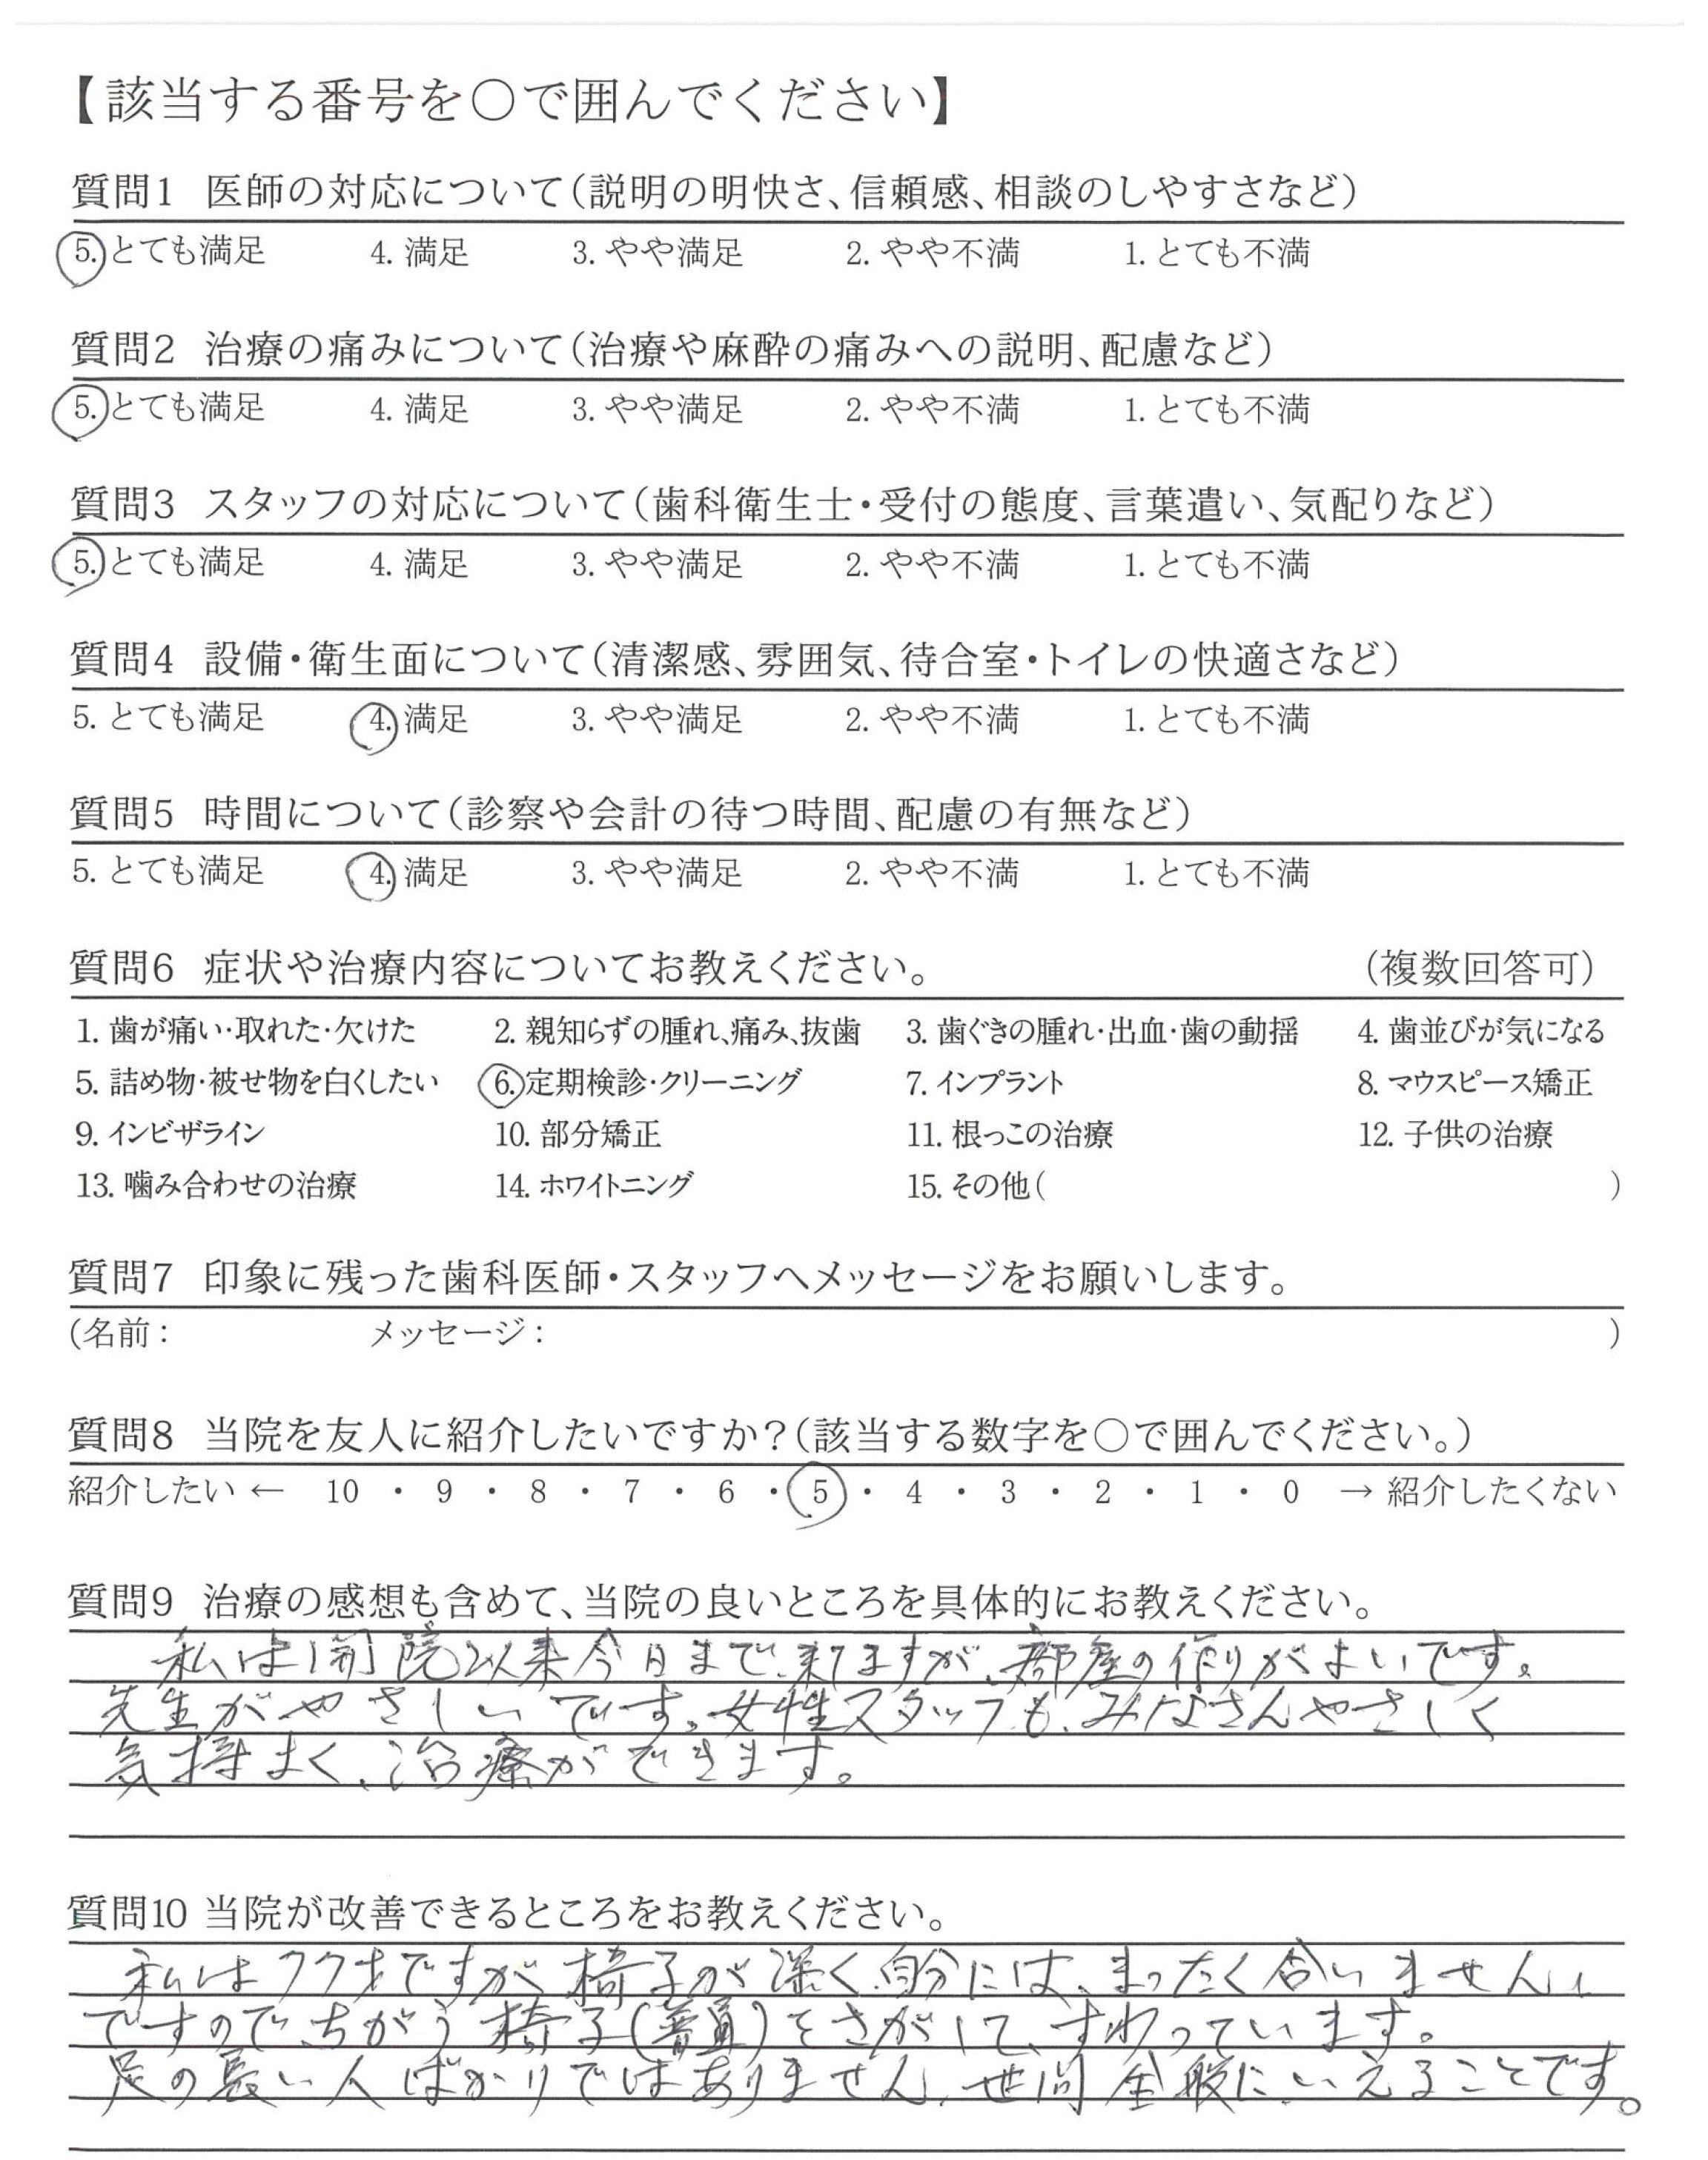 【該当する番号を○で囲んでください】
質問1 医師の対応について（説明の明快さ、信頼感、相談のしやすさなど）
5. とても満足 4. 満足 3. やや満足 2. やや不満 1. とても不満
質問2 治療の痛みについて（治療や麻酔の痛みへの説明、配慮など）
5. とても満足 4. 満足 3. やや満足 2. やや不満 1. とても不満
質問3 スタッフの対応について（歯科衛生士・受付の態度、言葉遣い、気配りなど）
5. とても満足 4. 満足 3. やや満足 2. やや不満 1. とても不満
質問4 設備・衛生面について（清潔感、雰囲気、待合室・トイレの快適さなど）
5. とても満足 4. 満足 3. やや満足 2. やや不満 1. とても不満
質問5 時間について（診察や会計の待つ時間、配慮の有無など）
5. とても満足 4. 満足 3. やや満足 2. やや不満 1. とても不満
質問6 症状や治療内容についてお教えください。 （複数回答可）
1. 歯が痛い・取れた・欠けた 2. 親知らずの腫れ、痛み、抜歯 3. 歯ぐきの腫れ・出血・歯の動揺 4. 歯並びが気になる
5. 詰め物・被せ物を白くしたい 6. 定期検診・クリーニング 7. インプラント 8. マウスピース矯正
9. インビザライン 10. 部分矯正 11. 根っこの治療 12. 子供の治療
13. 噛み合わせの治療 14. ホワイトニング 15. その他( )
質問7 印象に残った歯科医師・スタッフへメッセージをお願いします。
(名前： メッセージ： )
質問8 当院を友人に紹介したいですか？（該当する数字を○で囲んでください。）
紹介したい ← 10 ・ 9 ・ 8 ・ 7 ・ 6 ・ 5 ・ 4 ・ 3 ・ 2 ・ 1 ・ 0 → 紹介したくない
質問9 治療の感想も含めて、当院の良いところを具体的にお教えください。
私は開院以来今日まで、来てますが、部屋の作りがよいです。
先生がやさしいです。女性スタッフも、みなさんやさしく
気持よく、治療ができます。
質問10 当院が改善できるところをお教えください。
私は77才ですが椅子が深く、自分には、まったく合いません、
ですので、ちがう椅子(普通)をさがして、すわっています。
足の長い人ばかりではありません、世間全般にいえることです。